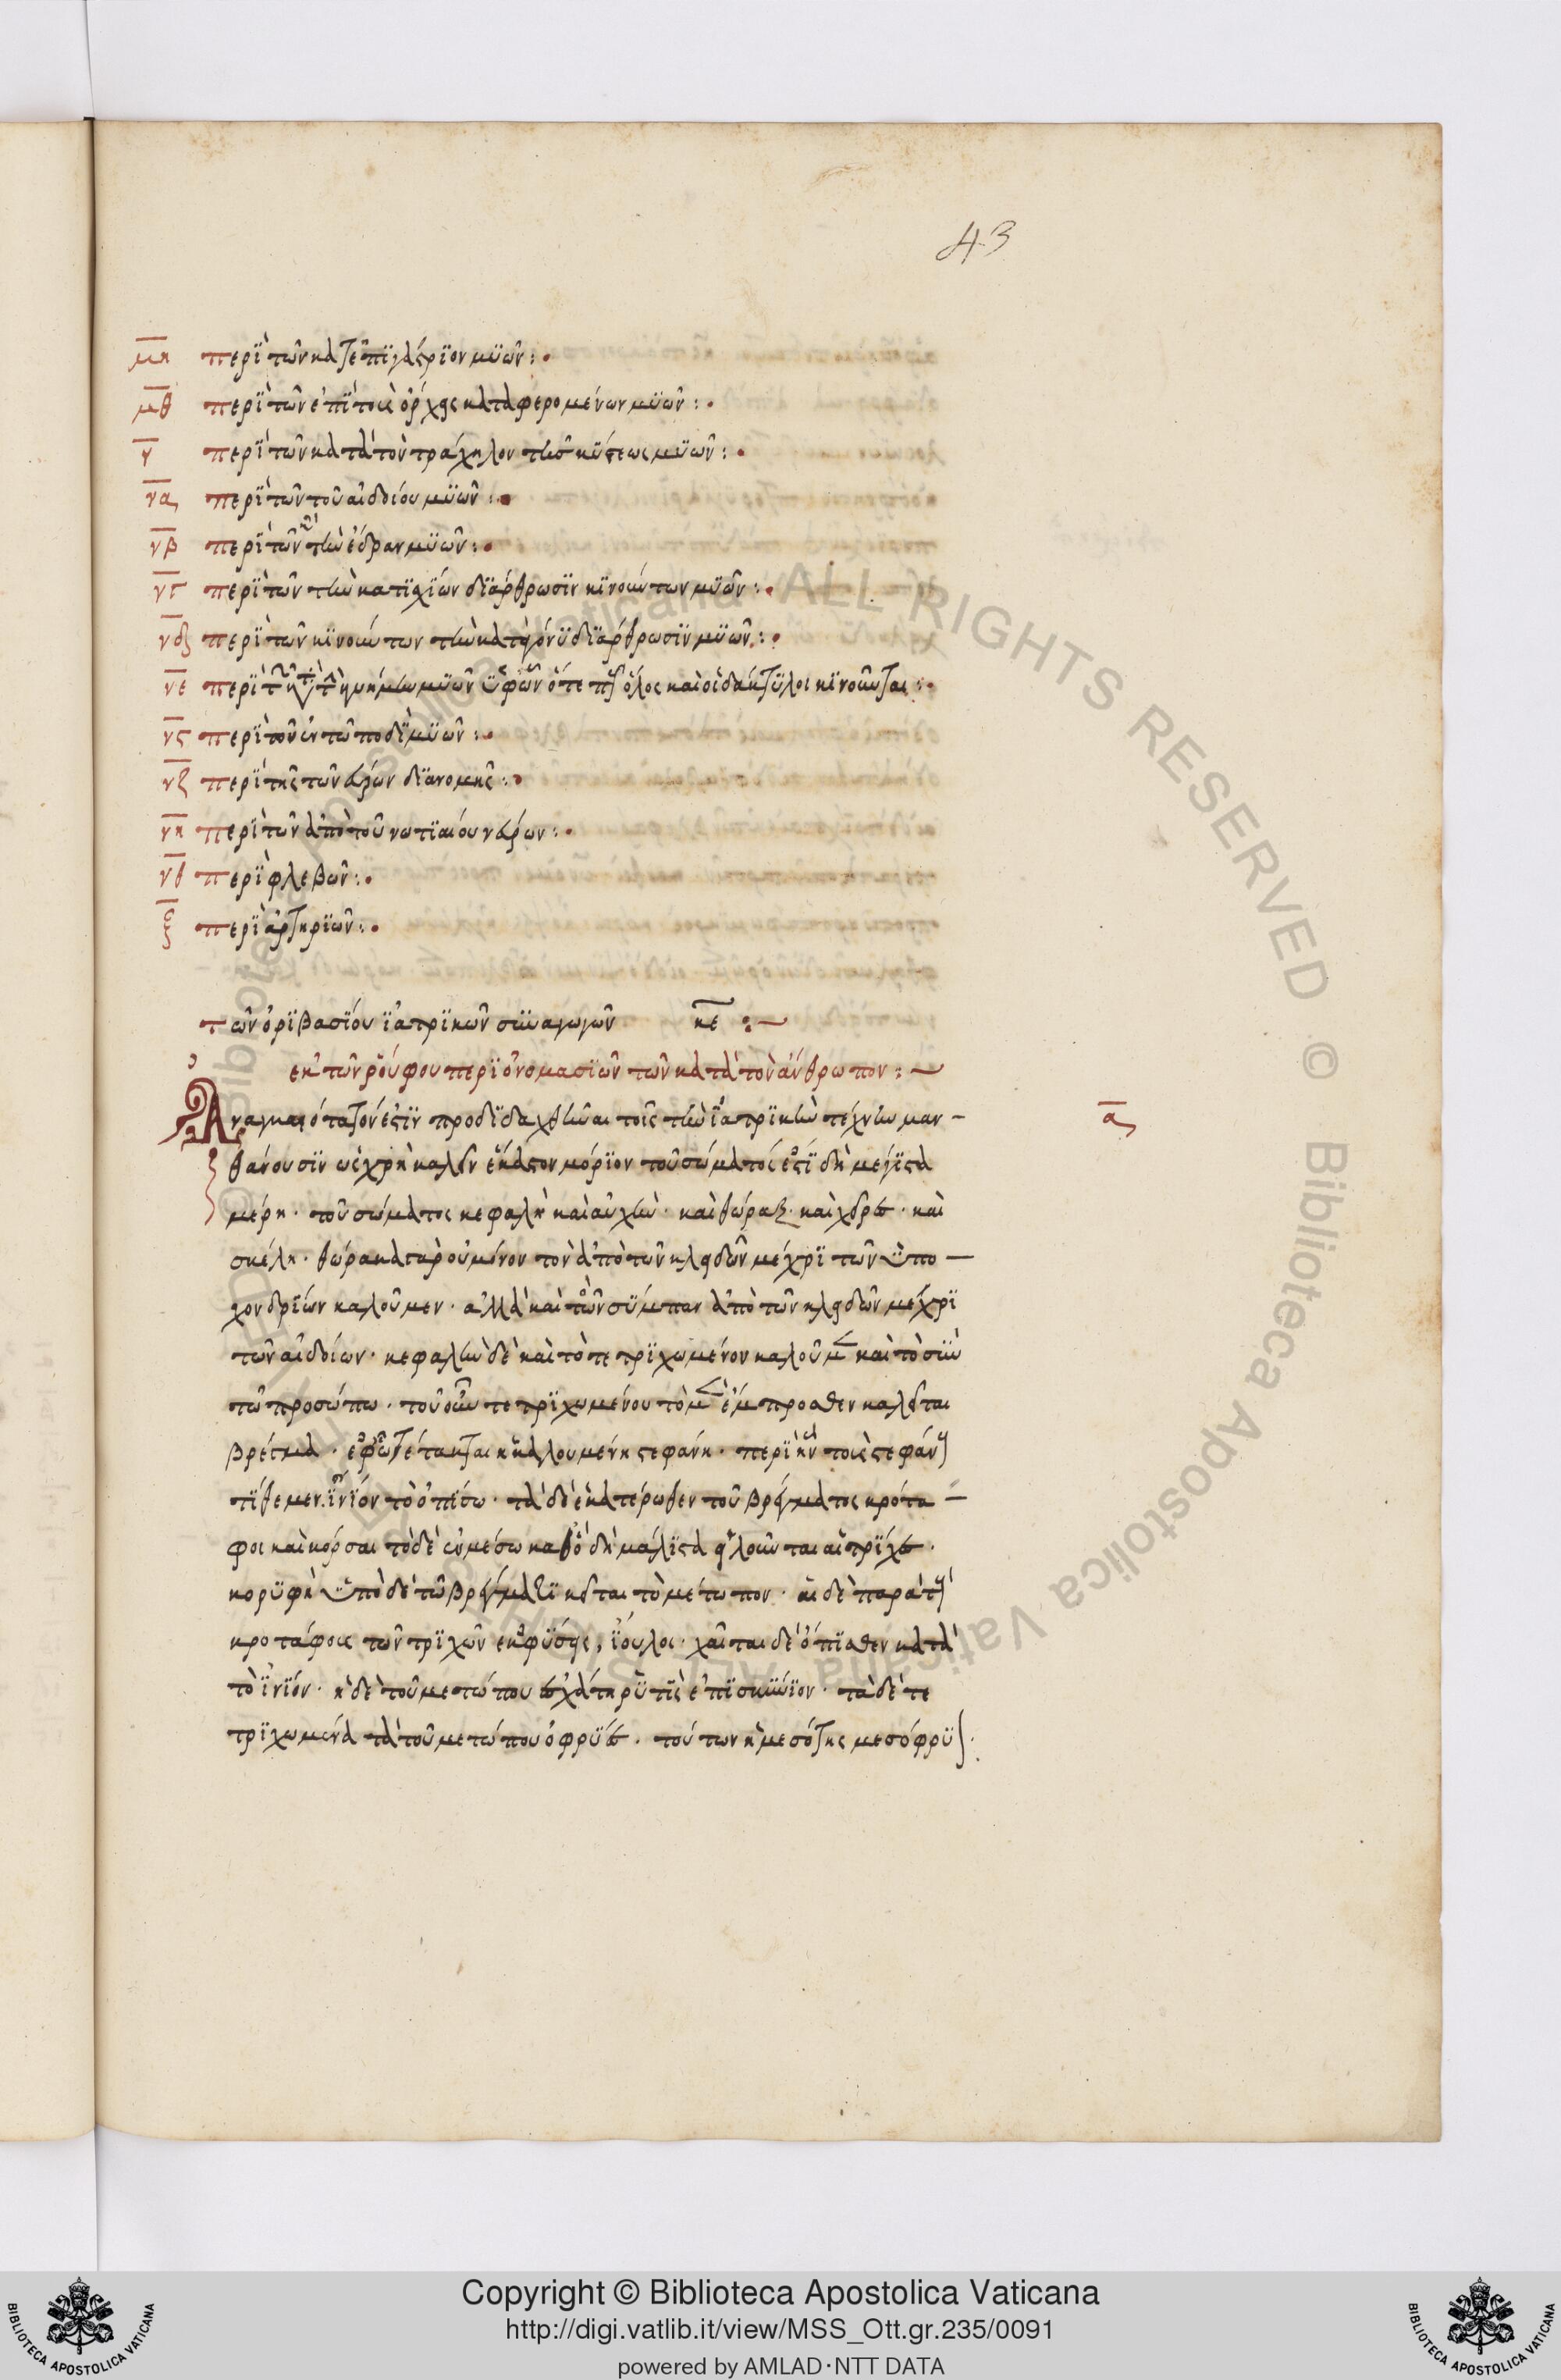 43
μη περὶ τῶν κατ' ἐπιγάστριον μυῶν:
μθ περὶ τῶν ἐπὶ τοὺς ὄρχεις καταφερομένων μυῶν:
ν περὶ τῶν κατὰ τὸν τράχηλον τῆς κύστεως μυῶν:
να περὶ τῶν τοῦ αἰδοίου μυῶν:
νβ περὶ τῶν κατὰ τὴν ἕδραν μυῶν:
νγ περὶ τῶν τὴν κατ' ἰσχίον διάρθρωσιν κινούντων μυῶν:
νδ περὶ τῶν κινούντων τὴν κατὰ γόνυ διάρθρωσιν μυῶν:
νε περὶ τῶν κατὰ τὴν κνήμην μυῶν ὑφ' ὧν ὅ τε ποῦς ὅλος καὶ οἱ δάκτυλοι κινοῦνται:
νς περὶ τῶν ἐν τῷ ποδὶ μυῶν:
νζ περὶ τῆς τῶν νεύρων διανομῆς:
νη περὶ τῶν ἀπὸ τοῦ νωτιαίου νεύρων:
νθ περὶ φλεβῶν:
ξ περὶ ἀρτηριῶν:
τῶν ὀριβασίου ἰατρικῶν συναγωγῶν κε :—
ἐκ τῶν ῥούφου περὶ ὀνομασιῶν τῶν κατὰ τὸν ἄνθρωπον:—
Ἀναγκαιότατόν ἐστιν προδιδαχθῆναι τοῖς τὴν ἰατρικὴν τέχνην μαν– α
θάνουσιν ὡς χρὴ καλεῖν ἕκαστον μόριον τοῦ σώματός ἐστι δὴ μέγιστα
μέρη· τοῦ σώματος κεφαλὴ καὶ αὐχὴν· καὶ θώραξ· καὶ χεῖρες· καὶ
σκέλη· θώρακα γὰρ οὐ μόνον τὸν ἀπὸ τῶν κλειδῶν μέχρι τῶν ὑπο–
χονδρίων καλοῦμεν· ἀλλὰ καὶ τὸ σύμπαν ἀπὸ τῶν κλειδῶν μέχρι
τῶν αἰδοίων· κεφαλὴν δὲ καὶ τὸ τετριχωμένον καλοῦμεν καὶ τὸ σὺν
τῷ προσώπω· τοῦ οὖν τετριχωμένου τὸ μὲν ἔμπροσθεν καλεῖται
βρέγμα· ἐφ' ὧ τέτακται ἡ καλουμένη στεφάνη· περὶ ἣν τοὺς στεφάνους
τίθεμεν· ἰνίον τὸ ὀπίσω· τὰ δὲ ἑκατέρωθεν τοῦ βρέγματος κρότα–
φοι καὶ κόρσαι τὸ δὲ ἐν μέσω καθὸ δὴ μάλιστα εἰλοῦνται αἱ τρίχες·
κορυφὴ ὑπὸ δὲ τῷ βρέγματι κεῖται τὸ μέτωπον· αἱ δὲ παρὰ τοὺς
κροτάφους τῶν τριχῶν ἐκφύσεις, ἴουλοι· χαῖται δὲ ὄπισθεν κατὰ
τὸ ἰνίον· ἡ δὲ τοῦ μετώπου ἐσχάτη ῥυτὶς ἐπισκύνιον· τὰ δὲ τε
τριχωμένα τὰ τοῦ μετώπου ὀφρύες· τούτων ἡ μεσότης μεσόφρυον·
Copyright © Biblioteca Apostolica Vaticana
http://digi.vatlib.it/view/MSS_Ott.gr.235/0091
powered by AMLAD·NTT DATA
BIBLIOTECA APOSTOLICA VATICANA
BIBLIOTECA APOSTOLICA VATICANA
© Biblioteca Apostolica Vaticana ALL RIGHTS RESERVED © Biblioteca Apostolica Vaticana ALL RIGHTS RESERVED